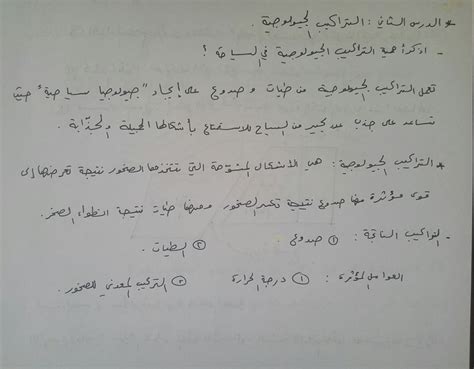 * الدرس الثاني : التراكيب الجيولوجية .
- اذكر أهمية التراكيب الجيولوجية في السياحة ؟
تعمل التراكيب الجيولوجية من طيات و صدوع على إيجاد "جيولوجيا سياحية" حيث
تساعد على جذب عدد كبير من السياح للاستمتاع بأشكالها الجميلة والجذّابة .
* التراكيب الجيولوجية : هي الأشكال المشوّهة التي تتخذها الصخور نتيجة تعرضها إلى
قوى مؤثرة منها صدوع نتيجة تكسر الصخور ومنها طيات نتيجة انطواء الصخر .
- التراكيب الناتجة : ① صدوع ② الطيات .
العوامل المؤثرة : ① درجة الحرارة ② التركيب المعدني للصخور .